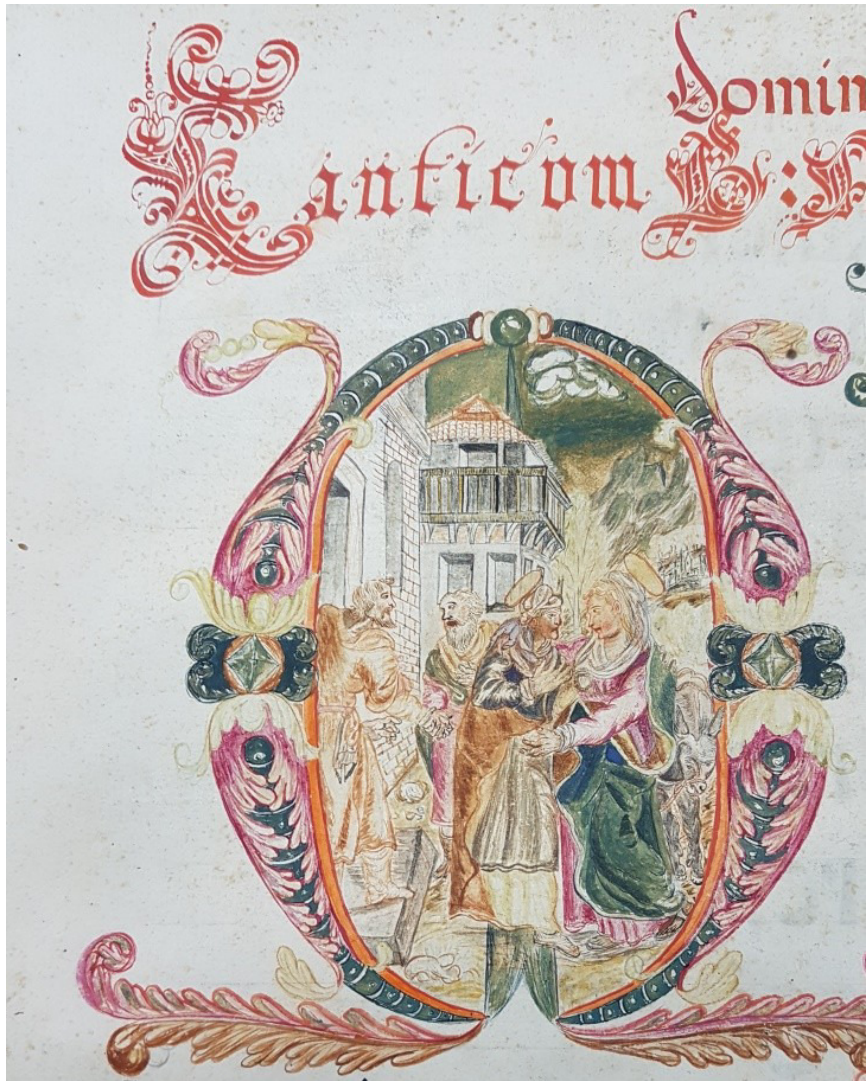 Domin
Canticvm B :